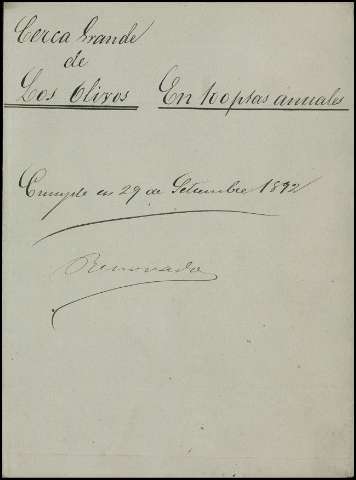 Cerca Grande
de
Los Olivos En 100 ptas anuales
Cumple en 29 de Setiembre 1892
Renovado